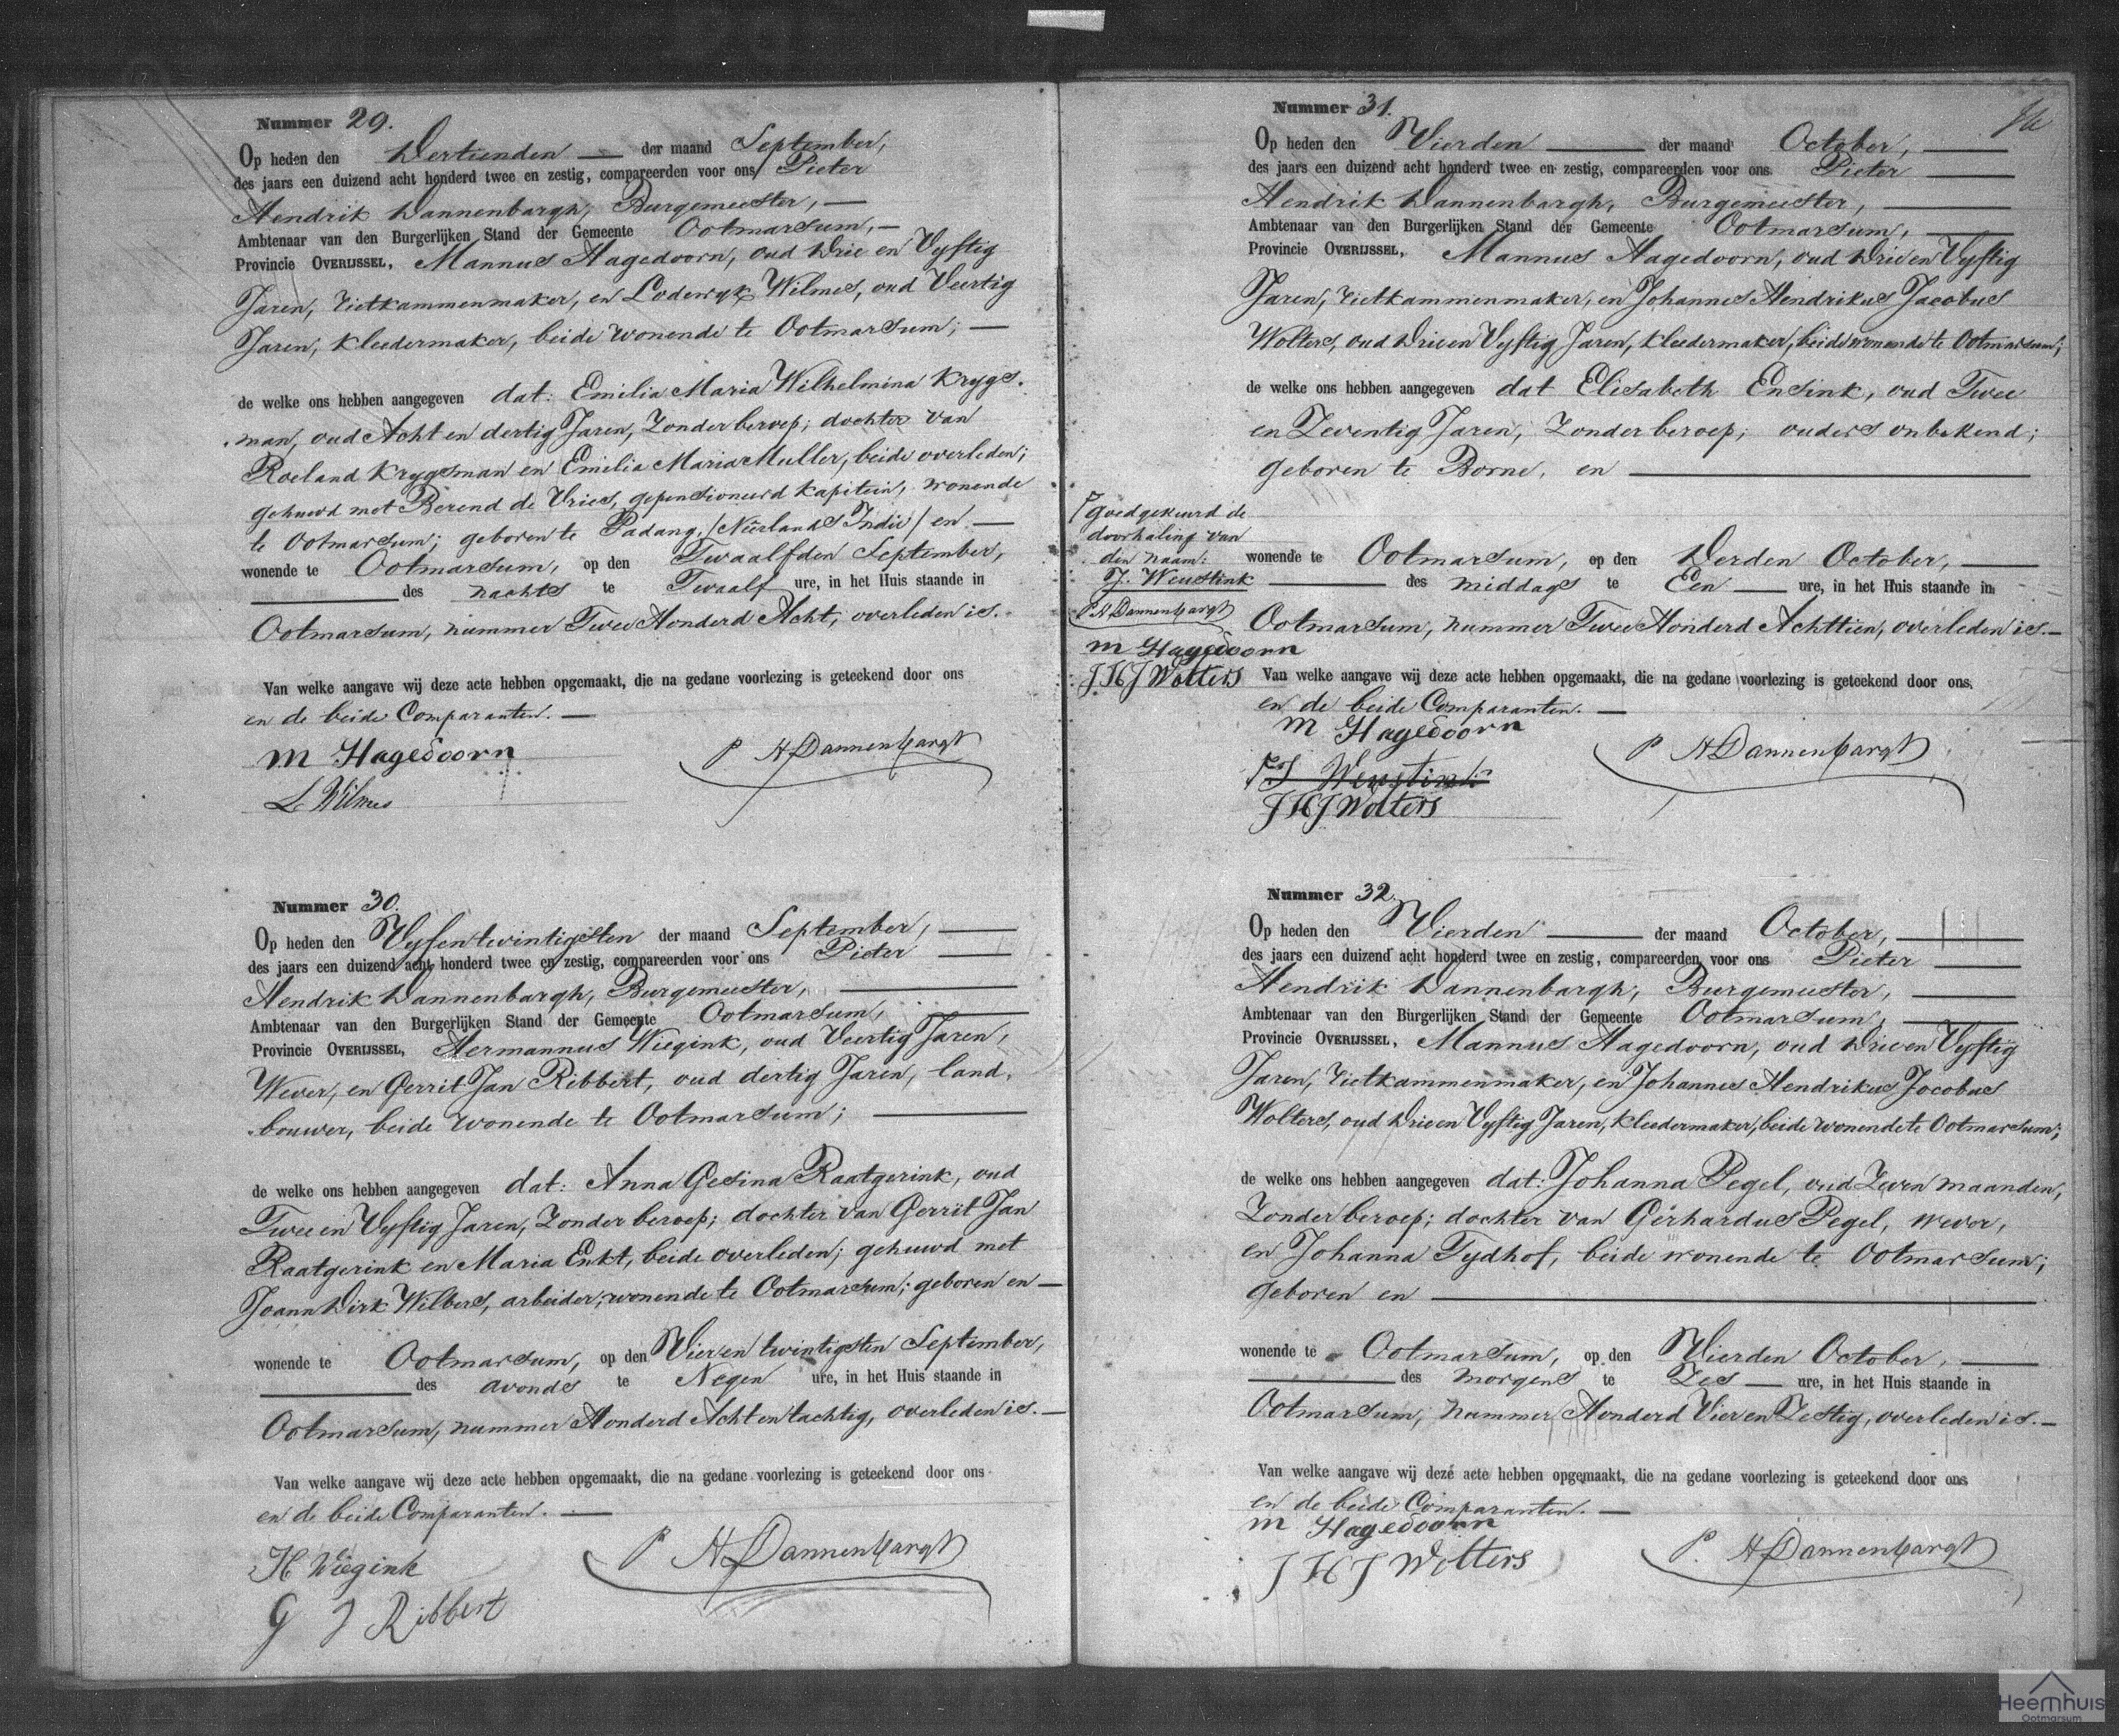 Nummer 29.
Op heden den Dertienden — der maand September,
des jaars een duizend acht honderd twee en zestig, compareerden voor ons Pieter
Hendrik Dannenbargh, Burgemeester, —
Ambtenaar van den Burgerlijken Stand der Gemeente Ootmarsum, —
Provincie OVERIJSSEL, Mannus Hagedoorn, oud Drie en Vyftig
Jaren, rietkammenmaker, en Lodewyk Wilmes, oud Veertig
Jaren, kleedermaker, beide wonende te Ootmarsum; —
de welke ons hebben aangegeven dat: Emilia Maria Wilhelmina Krygs-
man, oud Acht en dertig Jaren, Zonder beroep; dochter van
Roeland Krygsman en Emilia Maria Muller, beide overleden;
gehuwd met Berend de Vries, gepensioneerd kapitein, wonende
te Ootmarsum; geboren te Padang, /Neêrlands Indie/ en —
wonende te Ootmarsum, op den Twaalfden September,
— des nachts te Twaalf ure, in het Huis staande in
Ootmarsum, nummer Twee Honderd Acht, overleden is.
Van welke aangave wij deze acte hebben opgemaakt, die na gedane voorlezing is geteekend door ons
en de beide Comparanten. —
M Hagedoorn
P H Dannenbargh
L Wilmes
Nummer 30.
Op heden den Vyfentwintigsten der maand September, —
des jaars een duizend acht honderd twee en zestig, compareerden voor ons Pieter —
Hendrik Dannenbargh, Burgemeester, —
Ambtenaar van den Burgerlijken Stand der Gemeente Ootmarsum, —
Provincie OVERIJSSEL, Hermannus Wiegink, oud Veertig Jaren,
Wever, en Gerrit Jan Ribbert, oud dertig Jaren, land-
bouwer, beide wonende te Ootmarsum; —
de welke ons hebben aangegeven dat: Anna Gesina Raatgerink, oud
Twee en Vyftig Jaren, Zonder beroep; dochter van Gerrit Jan
Raatgerink en Maria Enkt, beide overleden; gehuwd met
Joann Dirk Wilbers, arbeider, wonende te Ootmarsum; geboren en —
wonende te Ootmarsum, op den Vier en twintigsten September,
— des avonds te Negen ure, in het Huis staande in
Ootmarsum, nummer Honderd Acht en tachtig, overleden is. —
Van welke aangave wij deze acte hebben opgemaakt, die na gedane voorlezing is geteekend door ons
en de beide Comparanten. —
H Wiegink
P H Dannenbargh
G J Ribbert
Nummer 31.
Op heden den Vierden — der maand October, —
des jaars een duizend acht honderd twee en zestig, compareerden voor ons Pieter —
Hendrik Dannenbargh, Burgemeester, —
Ambtenaar van den Burgerlijken Stand der Gemeente Ootmarsum, —
Provincie OVERIJSSEL, Mannus Hagedoorn, oud Drie en Vyftig
Jaren, rietkammenmaker, en Johannes Hendrikus Jacobus
Wolters, oud Drie en Vyftig Jaren, kleedermaker, beide wonende te Ootmarsum;
de welke ons hebben aangegeven dat Elisabeth Ensink, oud Twee
en Zeventig Jaren, Zonder beroep; ouders onbekend;
geboren te Borne, en —
wonende te Ootmarsum, op den Derden October, —
— des middags te Een — ure, in het Huis staande in
Ootmarsum, nummer Twee Honderd Achttien, overleden is. —
Van welke aangave wij deze acte hebben opgemaakt, die na gedane voorlezing is geteekend door ons
en de beide Comparanten. —
M Hagedoorn
P H Dannenbargh
J Weustink
J H J Wolters
goedgekeurd de
doorhaling van
den naam:
J. Weustink
P. H Dannenbargh
M Hagedoorn
J H J Wolters
Nummer 32.
Op heden den Vierden — der maand October, —
des jaars een duizend acht honderd twee en zestig, compareerden voor ons Pieter —
Hendrik Dannenbargh, Burgemeester, —
Ambtenaar van den Burgerlijken Stand der Gemeente Ootmarsum, —
Provincie OVERIJSSEL, Mannus Hagedoorn, oud Drie en Vyftig
Jaren, rietkammenmaker, en Johannes Hendrikus Jocobus
Wolters, oud Drie en Vyftig Jaren, kleedermaker, beide wonende te Ootmarsum;
de welke ons hebben aangegeven dat: Johanna Pegel, oud Zeven maanden,
Zonder beroep; dochter van Gerhardus Pegel, wever,
en Johanna Tydhof, beide wonende te Ootmarsum;
geboren en —
wonende te Ootmarsum, op den Vierden October, —
— des morgens te Zes — ure, in het Huis staande in
Ootmarsum, nummer Honderd Vier en Zestig, overleden is. —
Van welke aangave wij deze acte hebben opgemaakt, die na gedane voorlezing is geteekend door ons
en de beide Comparanten. —
M Hagedoorn
P. H Dannenbargh
J H J Wolters
Heemhuis
Ootmarsum